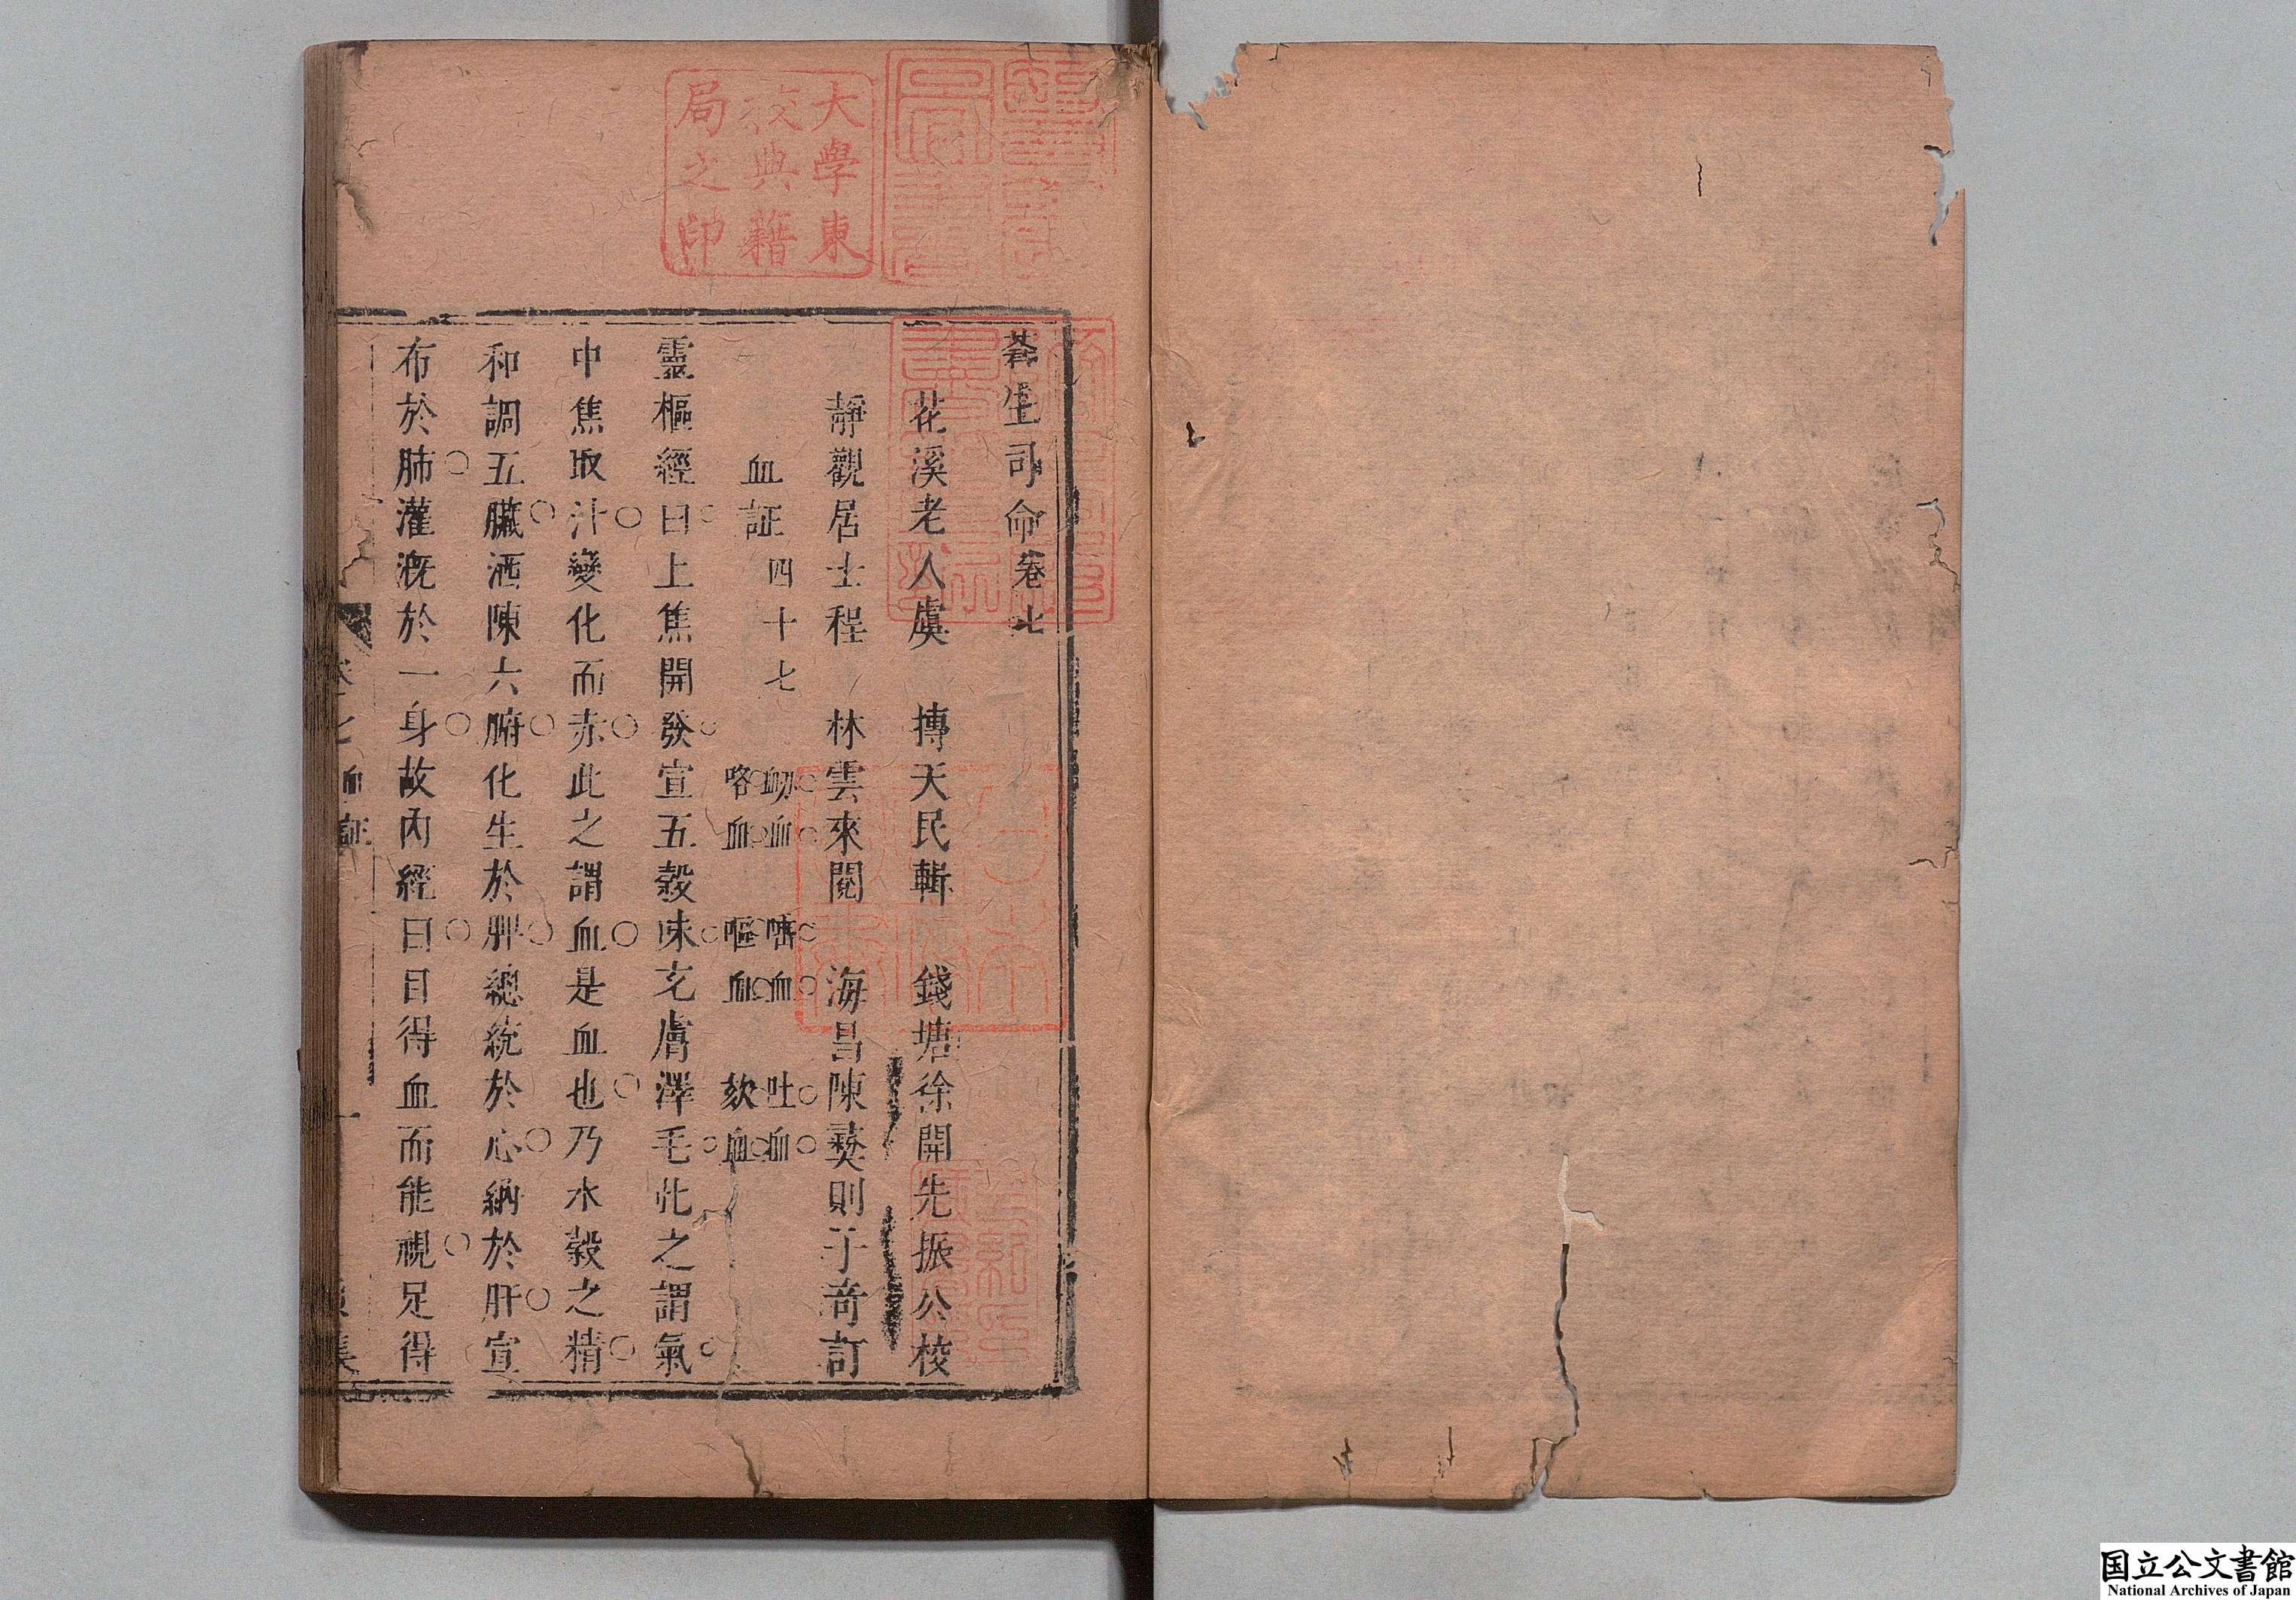 蒼生司命卷七
花溪老人虞 摶天民輯 錢塘徐開先振公校
靜觀居士程 林雲來閱 海昌陳蓂則子奇訂
血証四十七 衂血 嗜血 吐血
咯血 嘔血 欬血
靈樞經曰上焦開發宣五穀味充膚澤毛化之謂氣
中焦取汁變化而赤此之謂血是血也乃水穀之精
和調五臟洒陳六腑化生於脾總統於心納於肝宣
布於肺灌溉於一身故內經曰目得血而能視足得
卷七 血証 一
大學東
校典籍
局之印
国立公文書館
National Archives of Japan